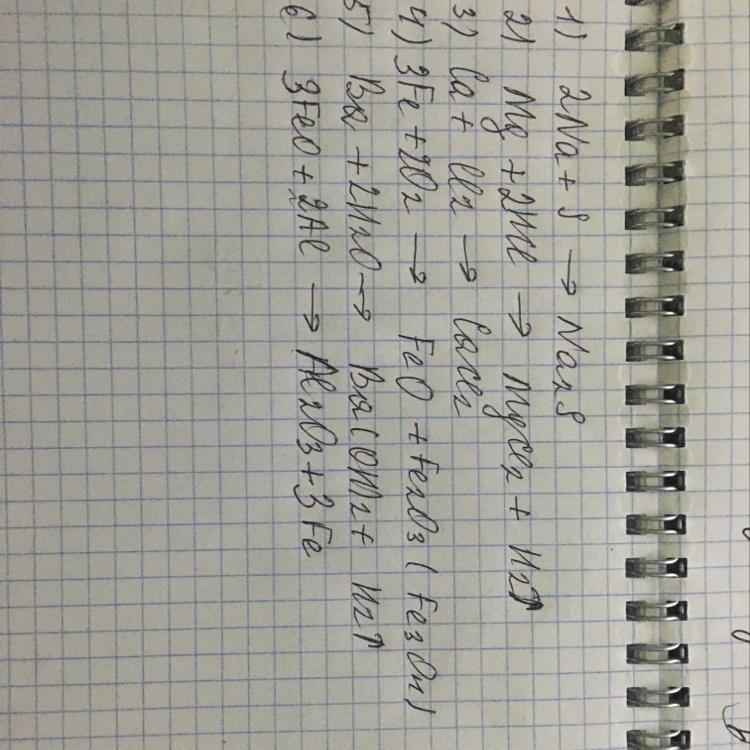 1) 2Na + S → Na2S
2) Mg + 2HCl → MgCl2 + H2↑
3) Ca + Cl2 → CaCl2
4) 3Fe + 2O2 → FeO + Fe2O3 (Fe3O4)
5) Ba + 2H2O → Ba(OH)2 + H2↑
6) 3FeO + 2Al → Al2O3 + 3Fe